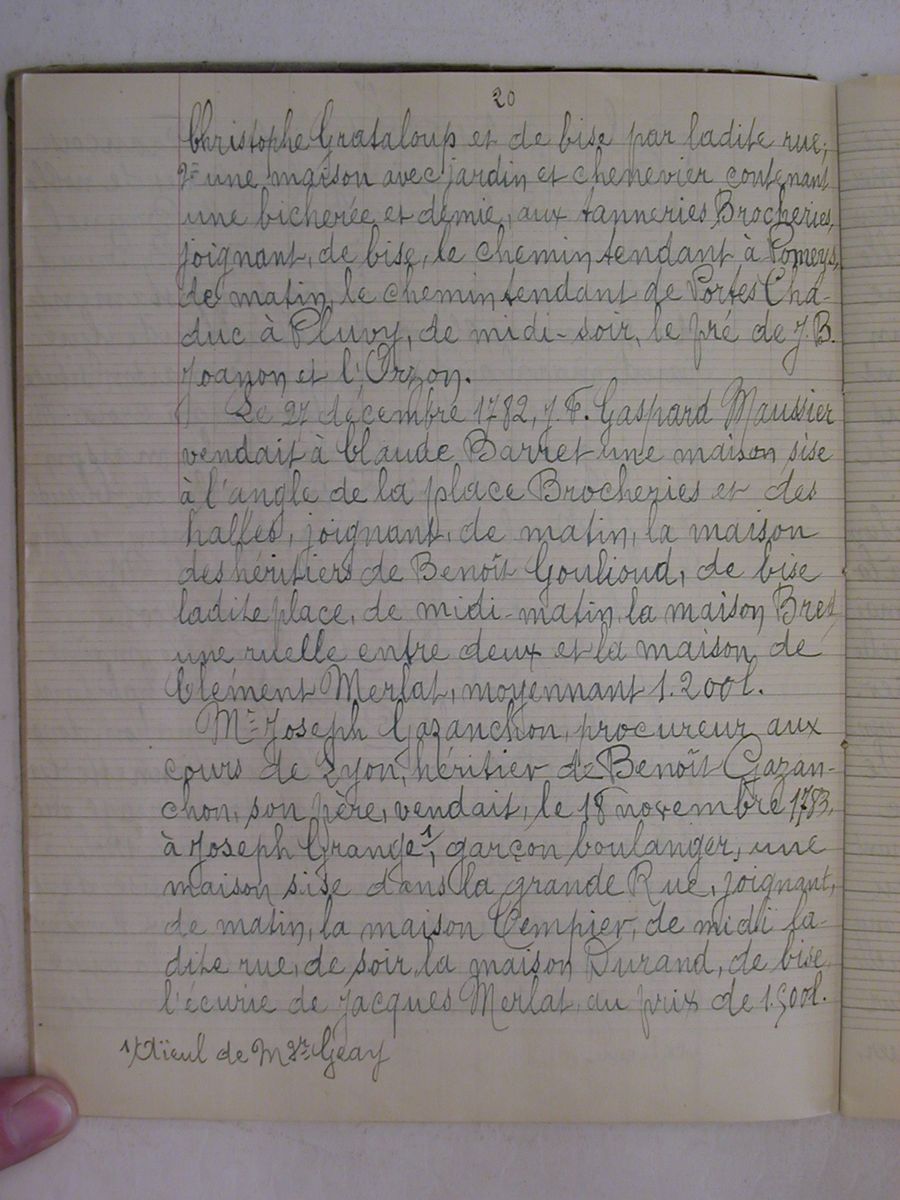 20
Christophe Grataloup et de bise par ladite rue;
2° une maison avec jardin et chenevier contenant
une bicherée et demie, aux tanneries Brocheries,
joignant, de bise, le chemin tendant à Pomeys,
de matin, le chemin tendant de Portes Cha-
duc à Pluvy, de midi-soir, le pré de J. B.
Joanon et l'Orzon.
Le 27 décembre 1782, J. F. Gaspard Maussier
vendait à Claude Barret une maison sise
à l'angle de la place Brocheries et des
halles, joignant, de matin, la maison
des héritiers de Benoît Goulioud, de bise
ladite place, de midi-matin, la maison
une ruelle entre deux et la maison de
Clément Merlat, moyennant 1.200l.
Me Joseph Gazanchon, procureur aux
cours de Lyon, héritier de Benoît Gazan-
chon, son père, vendait, le 18 novembre 1783,
à Joseph Grange 1/, garçon boulanger, une
maison sise dans la grande Rue, joignant,
de matin, la maison, de midi la-
dite rue, de soir, la maison Durand, de bise
l'écurie de Jacques Merlat, au prix de 1.500l.
1/ Aïeul de Mgr Geay